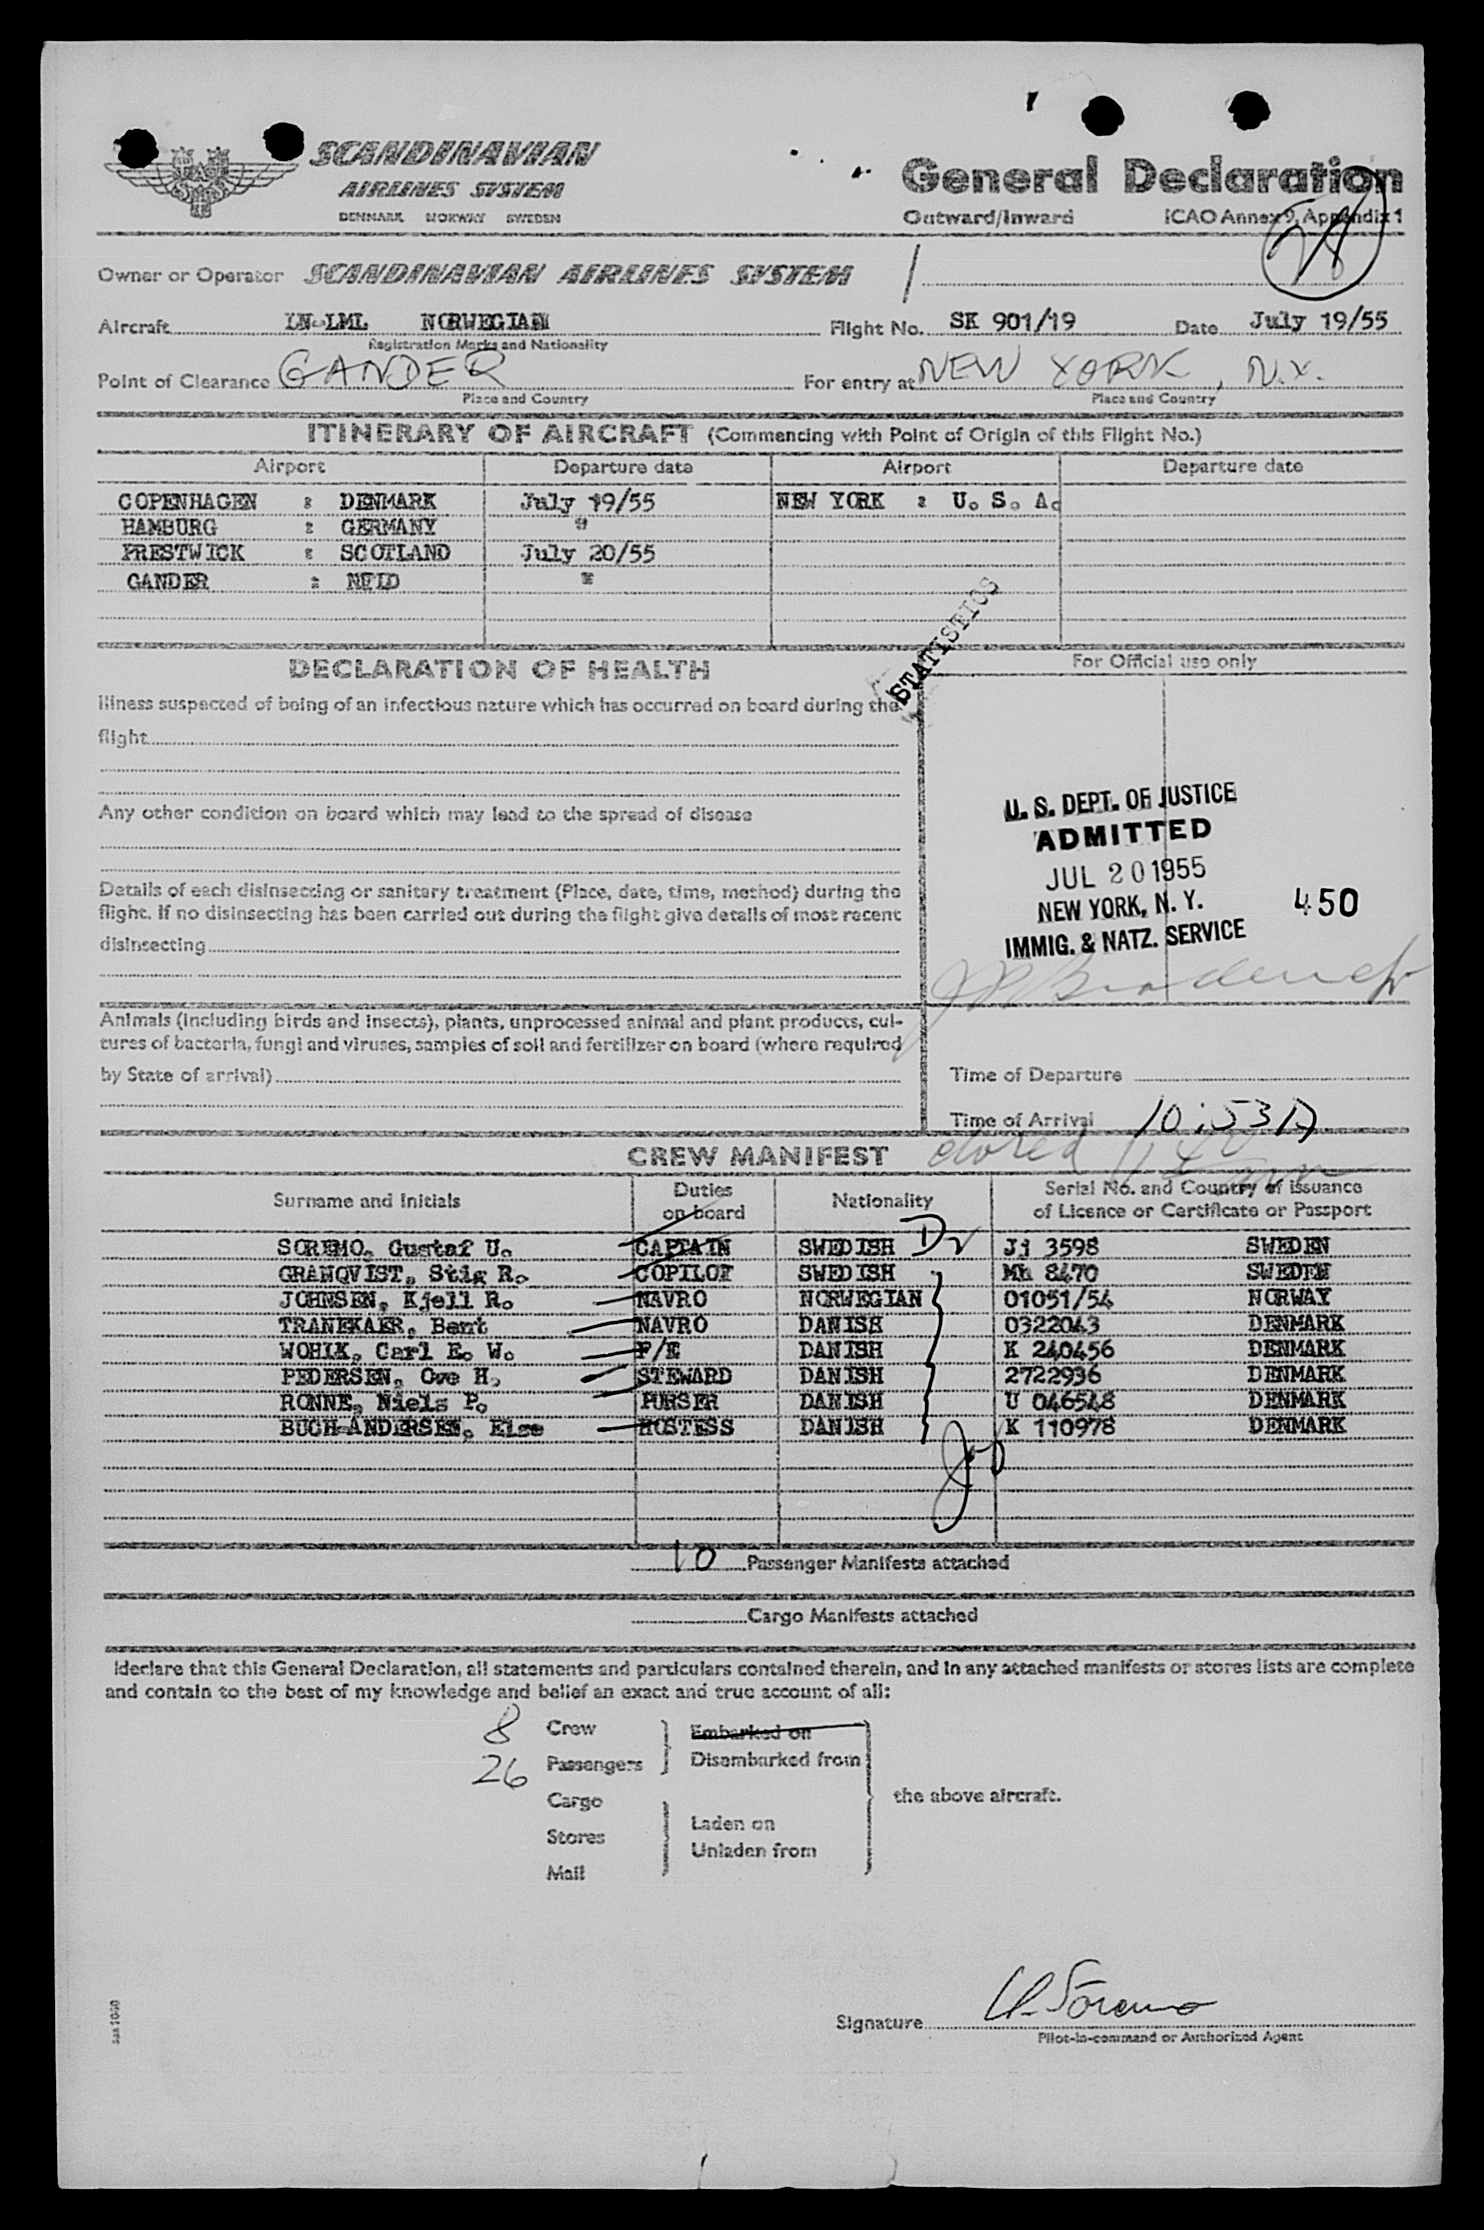 SCANDINAVIAN
AIRLINES SYSTEM
DENMARK NORWAY SWEDEN
General Declaration
Outward/Inward ICAO Annex 9, Appendix 1
Owner or Operator SCANDINAVIAN AIRLINES SYSTEM
Aircraft LN-LML NORWEGIAN Flight No. SK 901/19 Date July 19/55
Registration Marks and Nationality
Point of Clearance GANDER For entry at NEW YORK, N.Y.
Place and Country Place and Country
ITINERARY OF AIRCRAFT (Commencing with Point of Origin of this Flight No.)
Airport Departure date Airport Departure date
COPENHAGEN : DENMARK July 19/55 NEW YORK : U. S. A.
HAMBURG : GERMANY "
PRESTWICK : SCOTLAND July 20/55
GANDER : NFLD "
STATISTICS
DECLARATION OF HEALTH
For Official use only
Illness suspected of being of an infectious nature which has occurred on board during the
flight
Any other condition on board which may lead to the spread of disease
Details of each disinsecting or sanitary treatment (Place, date, time, method) during the
flight. If no disinsecting has been carried out during the flight give details of most recent
disinsecting
U. S. DEPT. OF JUSTICE
ADMITTED
JUL 20 1955
NEW YORK, N. Y.
IMMIG. & NATZ. SERVICE
450
Animals (including birds and insects), plants, unprocessed animal and plant products, cul-
tures of bacteria, fungi and viruses, samples of soil and fertilizer on board (where required
by State of arrival)
Time of Departure
Time of Arrival 10:53A
CREW MANIFEST
Surname and Initials Duties on board Nationality Serial No. and Country of issuance
of Licence or Certificate or Passport
SOREMO, Gustaf U. CAPTAIN SWEDISH Jj 3598 SWEDEN
GRANQVIST, Stig R. COPILOT SWEDISH Mh 8470 SWEDEN
JOHNSEN, Kjell R. NAVRO NORWEGIAN 01051/54 NORWAY
TRANEKAER, Bent NAVRO DANISH 0322043 DENMARK
WOHLK, Carl E. W. F/E DANISH K 240456 DENMARK
PEDERSEN, Ove H. STEWARD DANISH 2722936 DENMARK
RONNE, Niels P. PURSER DANISH U 046548 DENMARK
BUCH-ANDERSEN, Else HOSTESS DANISH K 110978 DENMARK
10 Passenger Manifests attached
Cargo Manifests attached
I declare that this General Declaration, all statements and particulars contained therein, and in any attached manifests or stores lists are complete
and contain to the best of my knowledge and belief an exact and true account of all:
8 Crew Embarked on
26 Passengers Disembarked from
Cargo the above aircraft.
Stores Laden on
Unladen from
Mail
Signature U. Söremo
Pilot-in-command or Authorized Agent